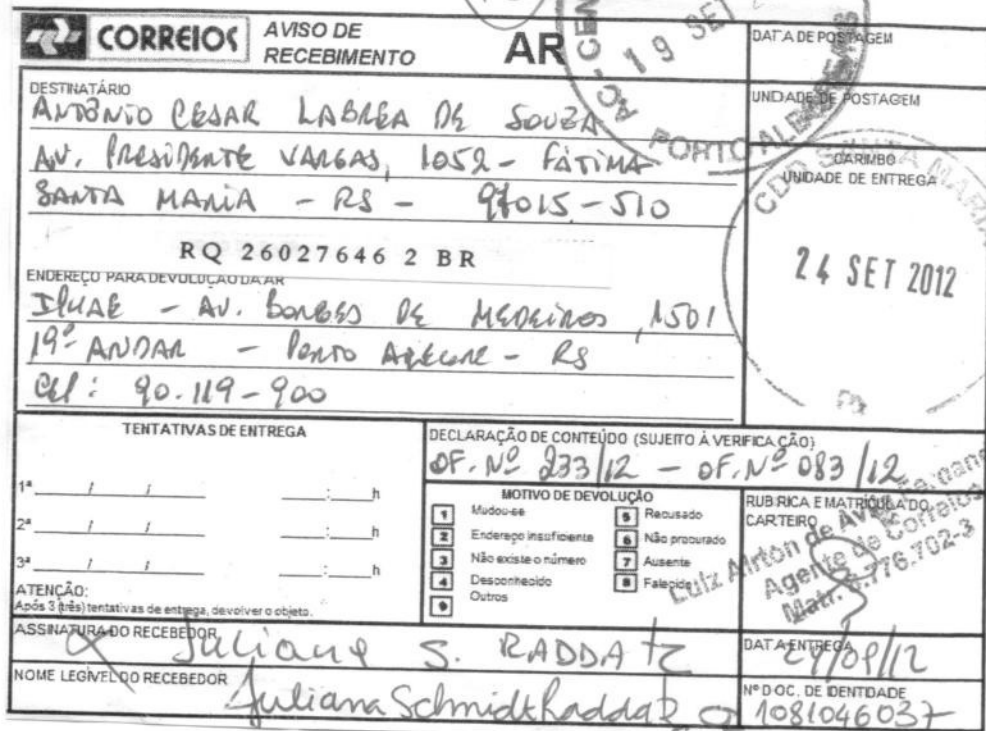 CORREIOS
AVISO DE
RECEBIMENTO
AR
19 SET
PORTO
DATA DE POSTAGEM
UNIDADE DE POSTAGEM
DESTINATÁRIO
ANTÔNIO CESAR LABREA DE SOUZA
AV. PRESIDENTE VARGAS, 1052 - FÁTIMA
SANTA MARIA - RS - 97015-510
RQ 26027646 2 BR
CARIMBO
UNIDADE DE ENTREGA
CDD SANTA MARIA
24 SET 2012
ENDEREÇO PARA DEVOLUÇÃO DA AR
AV. BORGES DE MEDEIROS, 1501
19º ANDAR - PORTO ALEGRE - RS
CEP: 90.119-900
TENTATIVAS DE ENTREGA
1ª ____/____/____ ____:____h
2ª ____/____/____ ____:____h
3ª ____/____/____ ____:____h
ATENÇÃO:
Após 3 (três) tentativas de entrega, devolver o objeto.
DECLARAÇÃO DE CONTEÚDO (SUJEITO À VERIFICAÇÃO)
OF. Nº 233/12 - OF. Nº 083/12
MOTIVO DE DEVOLUÇÃO
1 Mudou-se
2 Endereço insuficiente
3 Não existe o número
4 Desconhecido
9 Outros
5 Recusado
6 Não procurado
7 Ausente
8 Falecido
RUBRICA E MATRÍCULA DO
CARTEIRO
Luiz Airton de
Agente de Correios
Matr. 8.776.702-3
ASSINATURA DO RECEBEDOR
Juliana S. RADDATZ
DATA ENTREGA
24/09/12
NOME LEGÍVEL DO RECEBEDOR
Juliana Schmidt Raddatz
Nº DOC. DE IDENTIDADE
1081046037